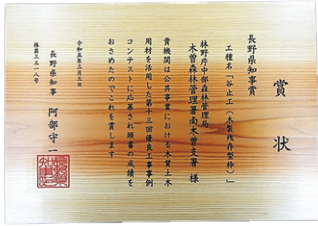 賞状
長野県知事賞
工種名「谷止工(木製残存型枠)」
林野庁中部森林管理局
木曽森林管理署南木曽支署 様
貴機関は公共事業における木質土木
用材を活用した第十三回優良工事事例
コンテストに応募され頭書の成績を
おさめたのでこれを賞します
令和五年三月三日
長野県知事 阿部守一
林第三五一八号